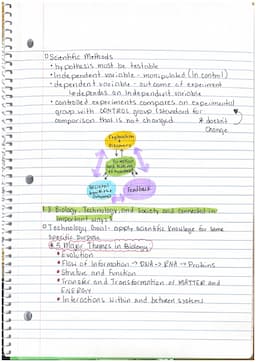 Scientific Methods
• hypothesis must be testable
• independent variable - manipulated (in control)
• dependent variable - outcome of experiment
↳ depends on independent variable
• controlled experiments compares an experimental
group with CONTROL group (standard for
comparison that is not changed * doesn't
change
Exploration
+
Discovery
Formation
and testing
of hypotheses
Societal
Benefits +
Outcomes
Feedback
1.3 Biology, Technology, and Society are connected in
important ways:
Technology Goal: apply scientific knowledge for some
specific purpose
* 5 Major Themes in Biology
• Evolution
• Flow of Information → DNA → RNA → Proteins
• Structure and Function
• Transfer and Transformation of MATTER and
ENERGY
• Interactions within and between systems